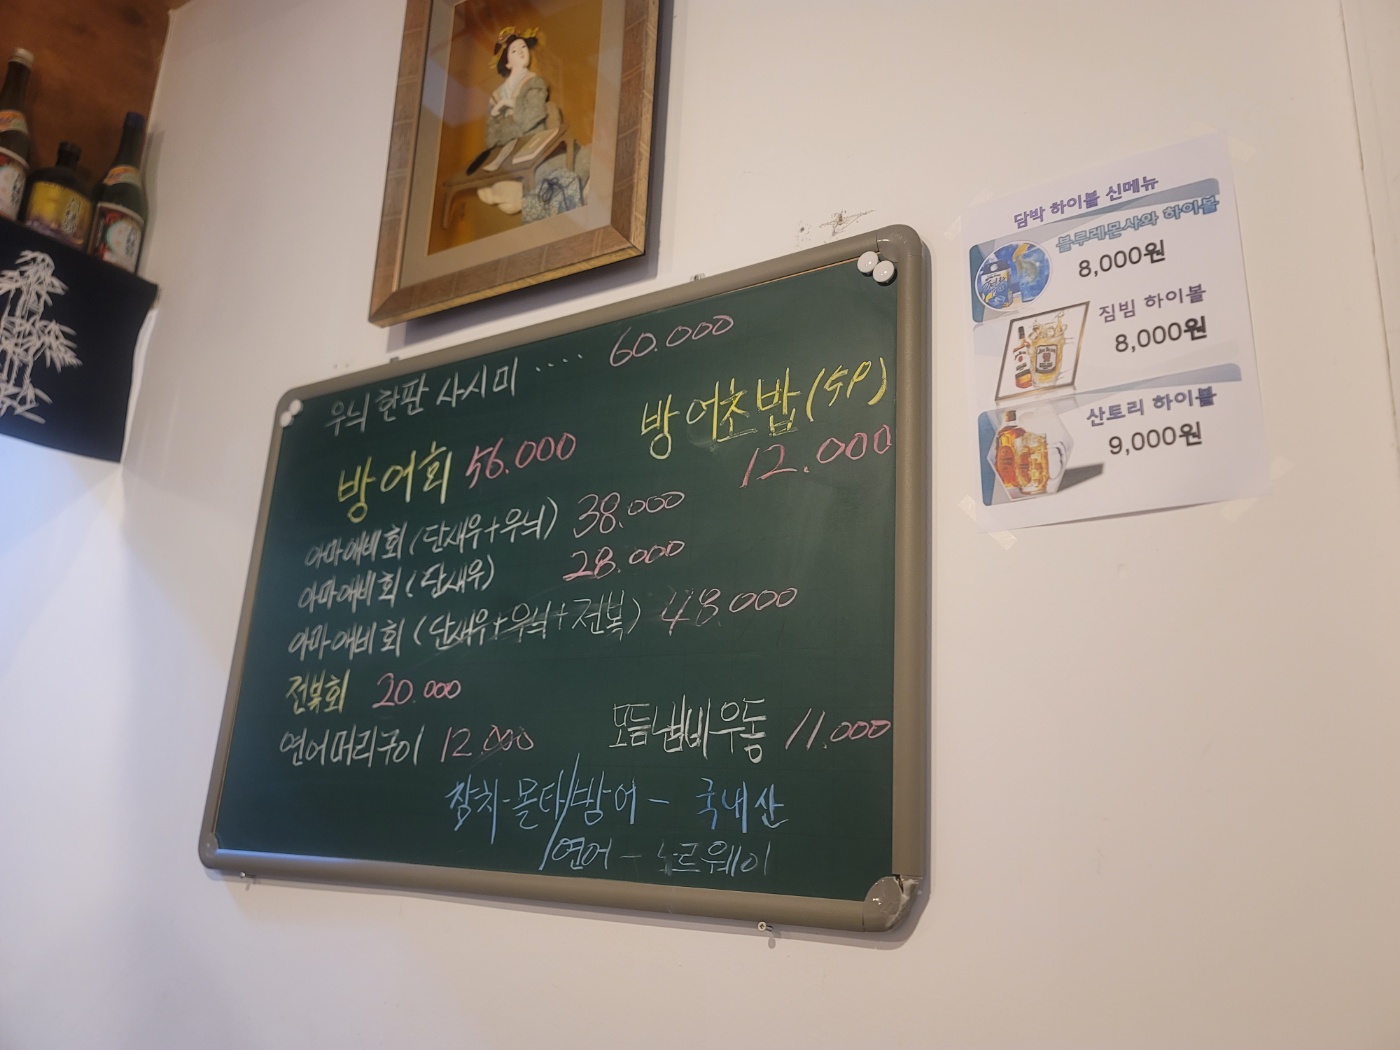 우늬 한판 사시미 ···· 60.000
방어회 56.000
방어초밥(5P)
12.000
아마애비회 (단새우+우늬) 38.000
아마애비회 (단새우) 28.000
아마애비회 (단새우+우늬+전복) 48.000
전복회 20.000
연어머리구이 12.000
모듬냄비우동 11.000
참치-몰타/방어 - 국내산
/연어 - 노르웨이
담박 하이볼 신메뉴
블루레몬사와 하이볼
8,000원
짐빔 하이볼
8,000원
산토리 하이볼
9,000원